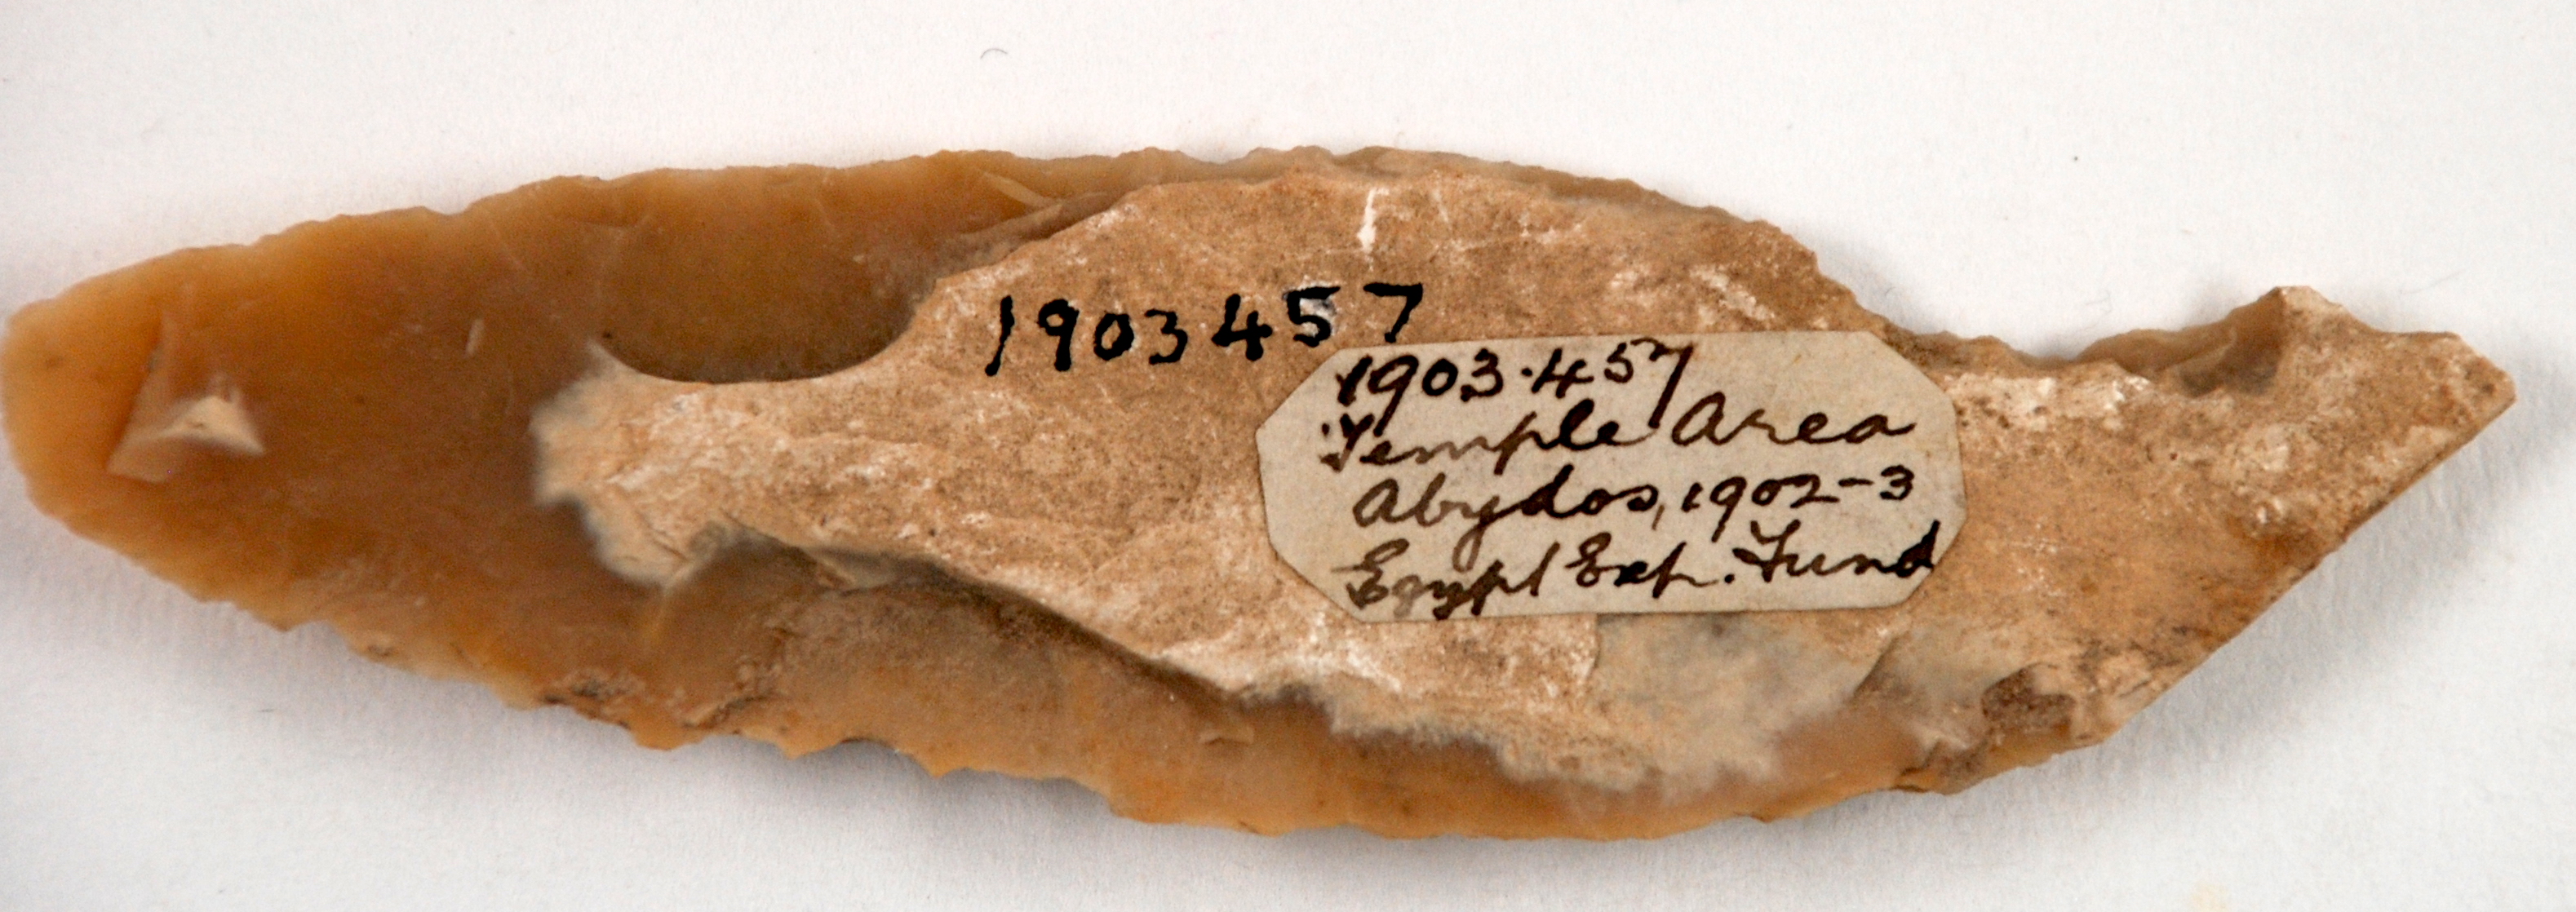 1903457
1903.457
Temple Area
Abydos, 1902-3
Egypt Exp. Fund